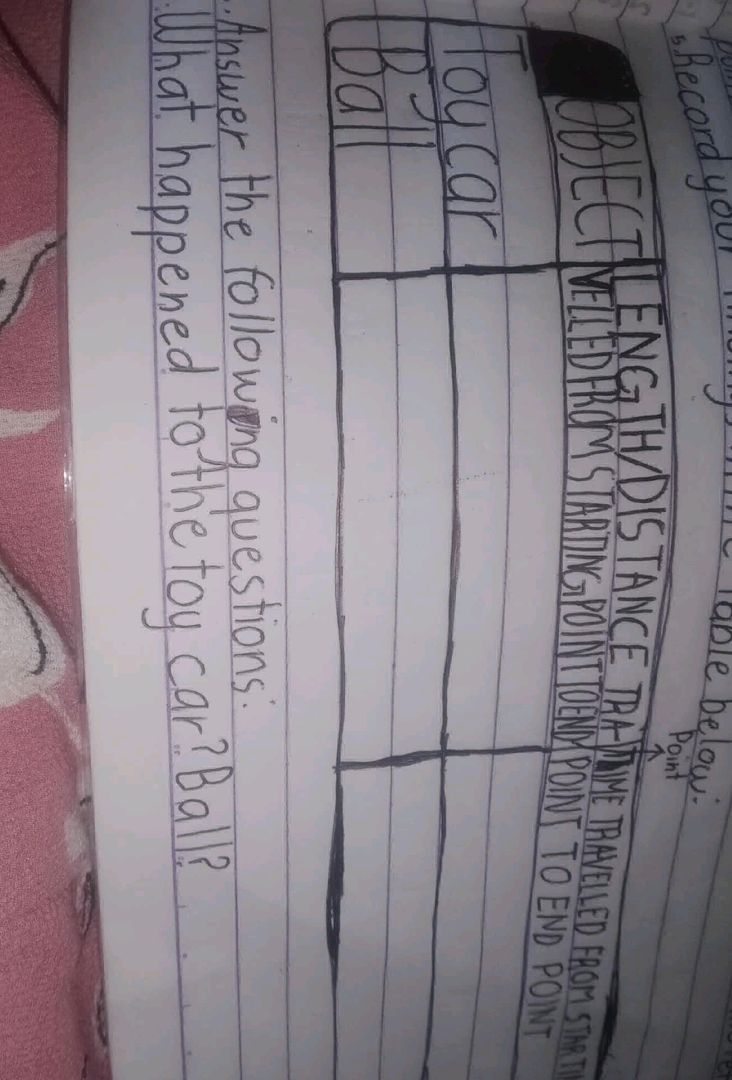 5. Record your findings in the table below.
Point
OBJECT
LENGTH/DISTANCE TRA-
VELLED FROM STARTING POINT TO END POINT
TIME TRAVELLED FROM STARTI
POINT TO END POINT
Toy car
Ball
Answer the following questions:
What happened to the toy car? Ball?